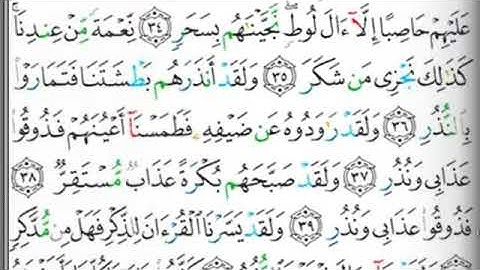 عَلَيْهِمْ حَاصِبًا إِلَّآ ءَالَ لُوطٍ ۖ نَّجَّيْنَٰهُم بِسَحَرٍ ﴿٣٤﴾ نِّعْمَةً مِّنْ عِندِنَا ۚ
كَذَٰلِكَ نَجْزِى مَن شَكَرَ ﴿٣٥﴾ وَلَقَدْ أَنذَرَهُم بَطْشَتَنَا فَتَمَارَوْا۟
بِٱلنُّذُرِ ﴿٣٦﴾ وَلَقَدْ رَٰوَدُوهُ عَن ضَيْفِهِۦ فَطَمَسْنَآ أَعْيُنَهُمْ فَذُوقُوا۟
عَذَابِى وَنُذُرِ ﴿٣٧﴾ وَلَقَدْ صَبَّحَهُم بُكْرَةً عَذَابٌ مُّسْتَقِرٌّ ﴿٣٨﴾
فَذُوقُوا۟ عَذَابِى وَنُذُرِ ﴿٣٩﴾ وَلَقَدْ يَسَّرْنَا ٱلْقُرْءَانَ لِلذِّكْرِ فَهَلْ مِن مُّدَّكِرٍ